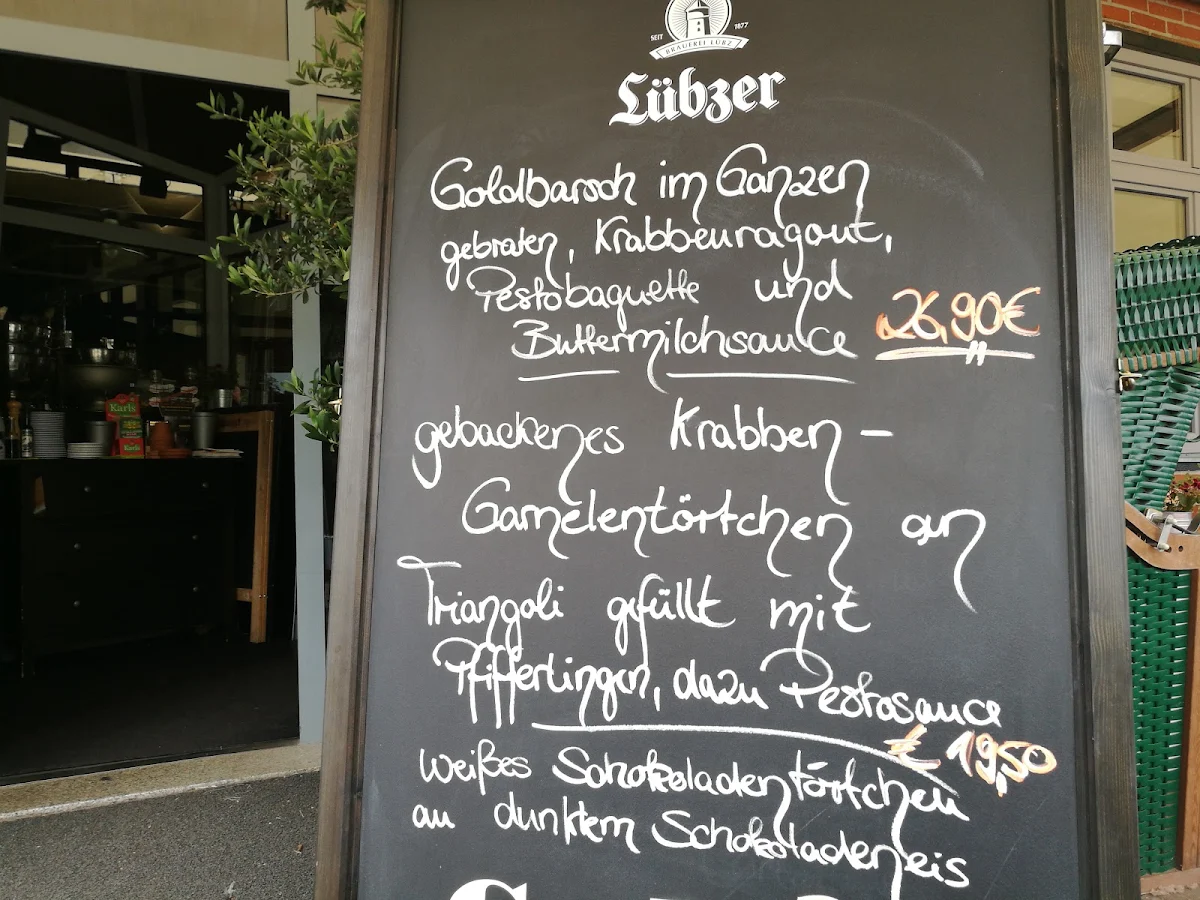 SEIT 1877
BRAUEREI LÜBZ
Lübzer
Goldbarsch im Ganzen
gebraten, Krabbenragout,
Pestobaguette und
Buttermilchsauce 26,90€
gebackenes Krabben-
Garnelentörtchen an
Triangoli gefüllt mit
Pfifferlingen, dazu Pestosauce
€ 19,50
weißes Schokoladentörtchen
an dunklem Schokoladeneis
Karls